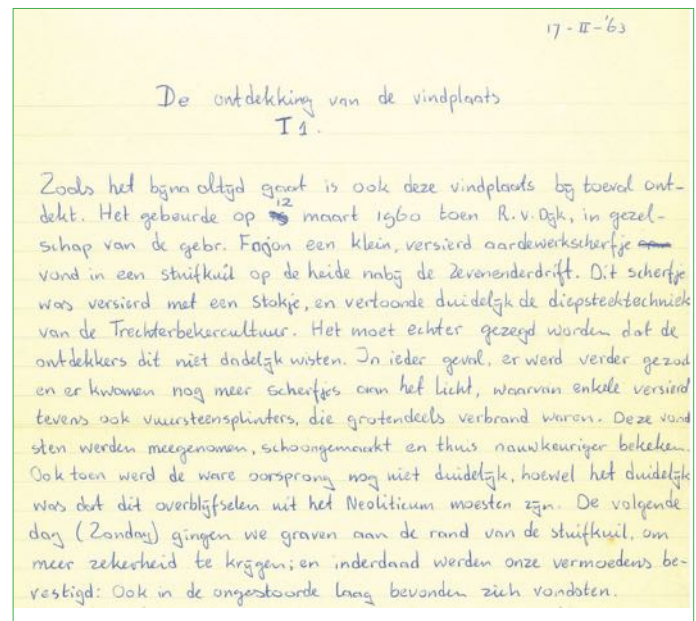 17-II-'63
De ontdekking van de vindplaats
T 1.
Zoals het bijna altijd gaat is ook deze vindplaats bij toeval ont-
dekt. Het gebeurde op 12 maart 1960 toen R.v.Dijk, in gezel-
schap van de gebr. Fagon een klein, versierd aardewerkscherfje
vond in een stuifkuil op de heide nabij de Zevenenderdrift. Dit scherfje
was versierd met een stokje, en vertoonde duidelijk de diepsteektechniek
van de Trechterbekercultuur. Het moet echter gezegd worden dat de
ontdekkers dit niet dadelijk wisten. In ieder geval, er werd verder gezoe
en er kwamen nog meer scherfjes aan het licht, waarvan enkele versierd
tevens ook vuursteensplinters, die grotendeels verbrand waren. Deze vond
sten werden meegenomen, schoongemaakt en thuis nauwkeuriger bekeken.
Ook toen werd de ware oorsprong nog niet duidelijk, hoewel het duidelijk
was dat dit overblijfselen uit het Neoliticum moesten zijn. De volgende
dag (Zondag) gingen we graven aan de rand van de stuifkuil, om
meer zekerheid te krijgen; en inderdaad werden onze vermoedens be-
vestigd: Ook in de ongestoorde laag bevonden zich vondsten.